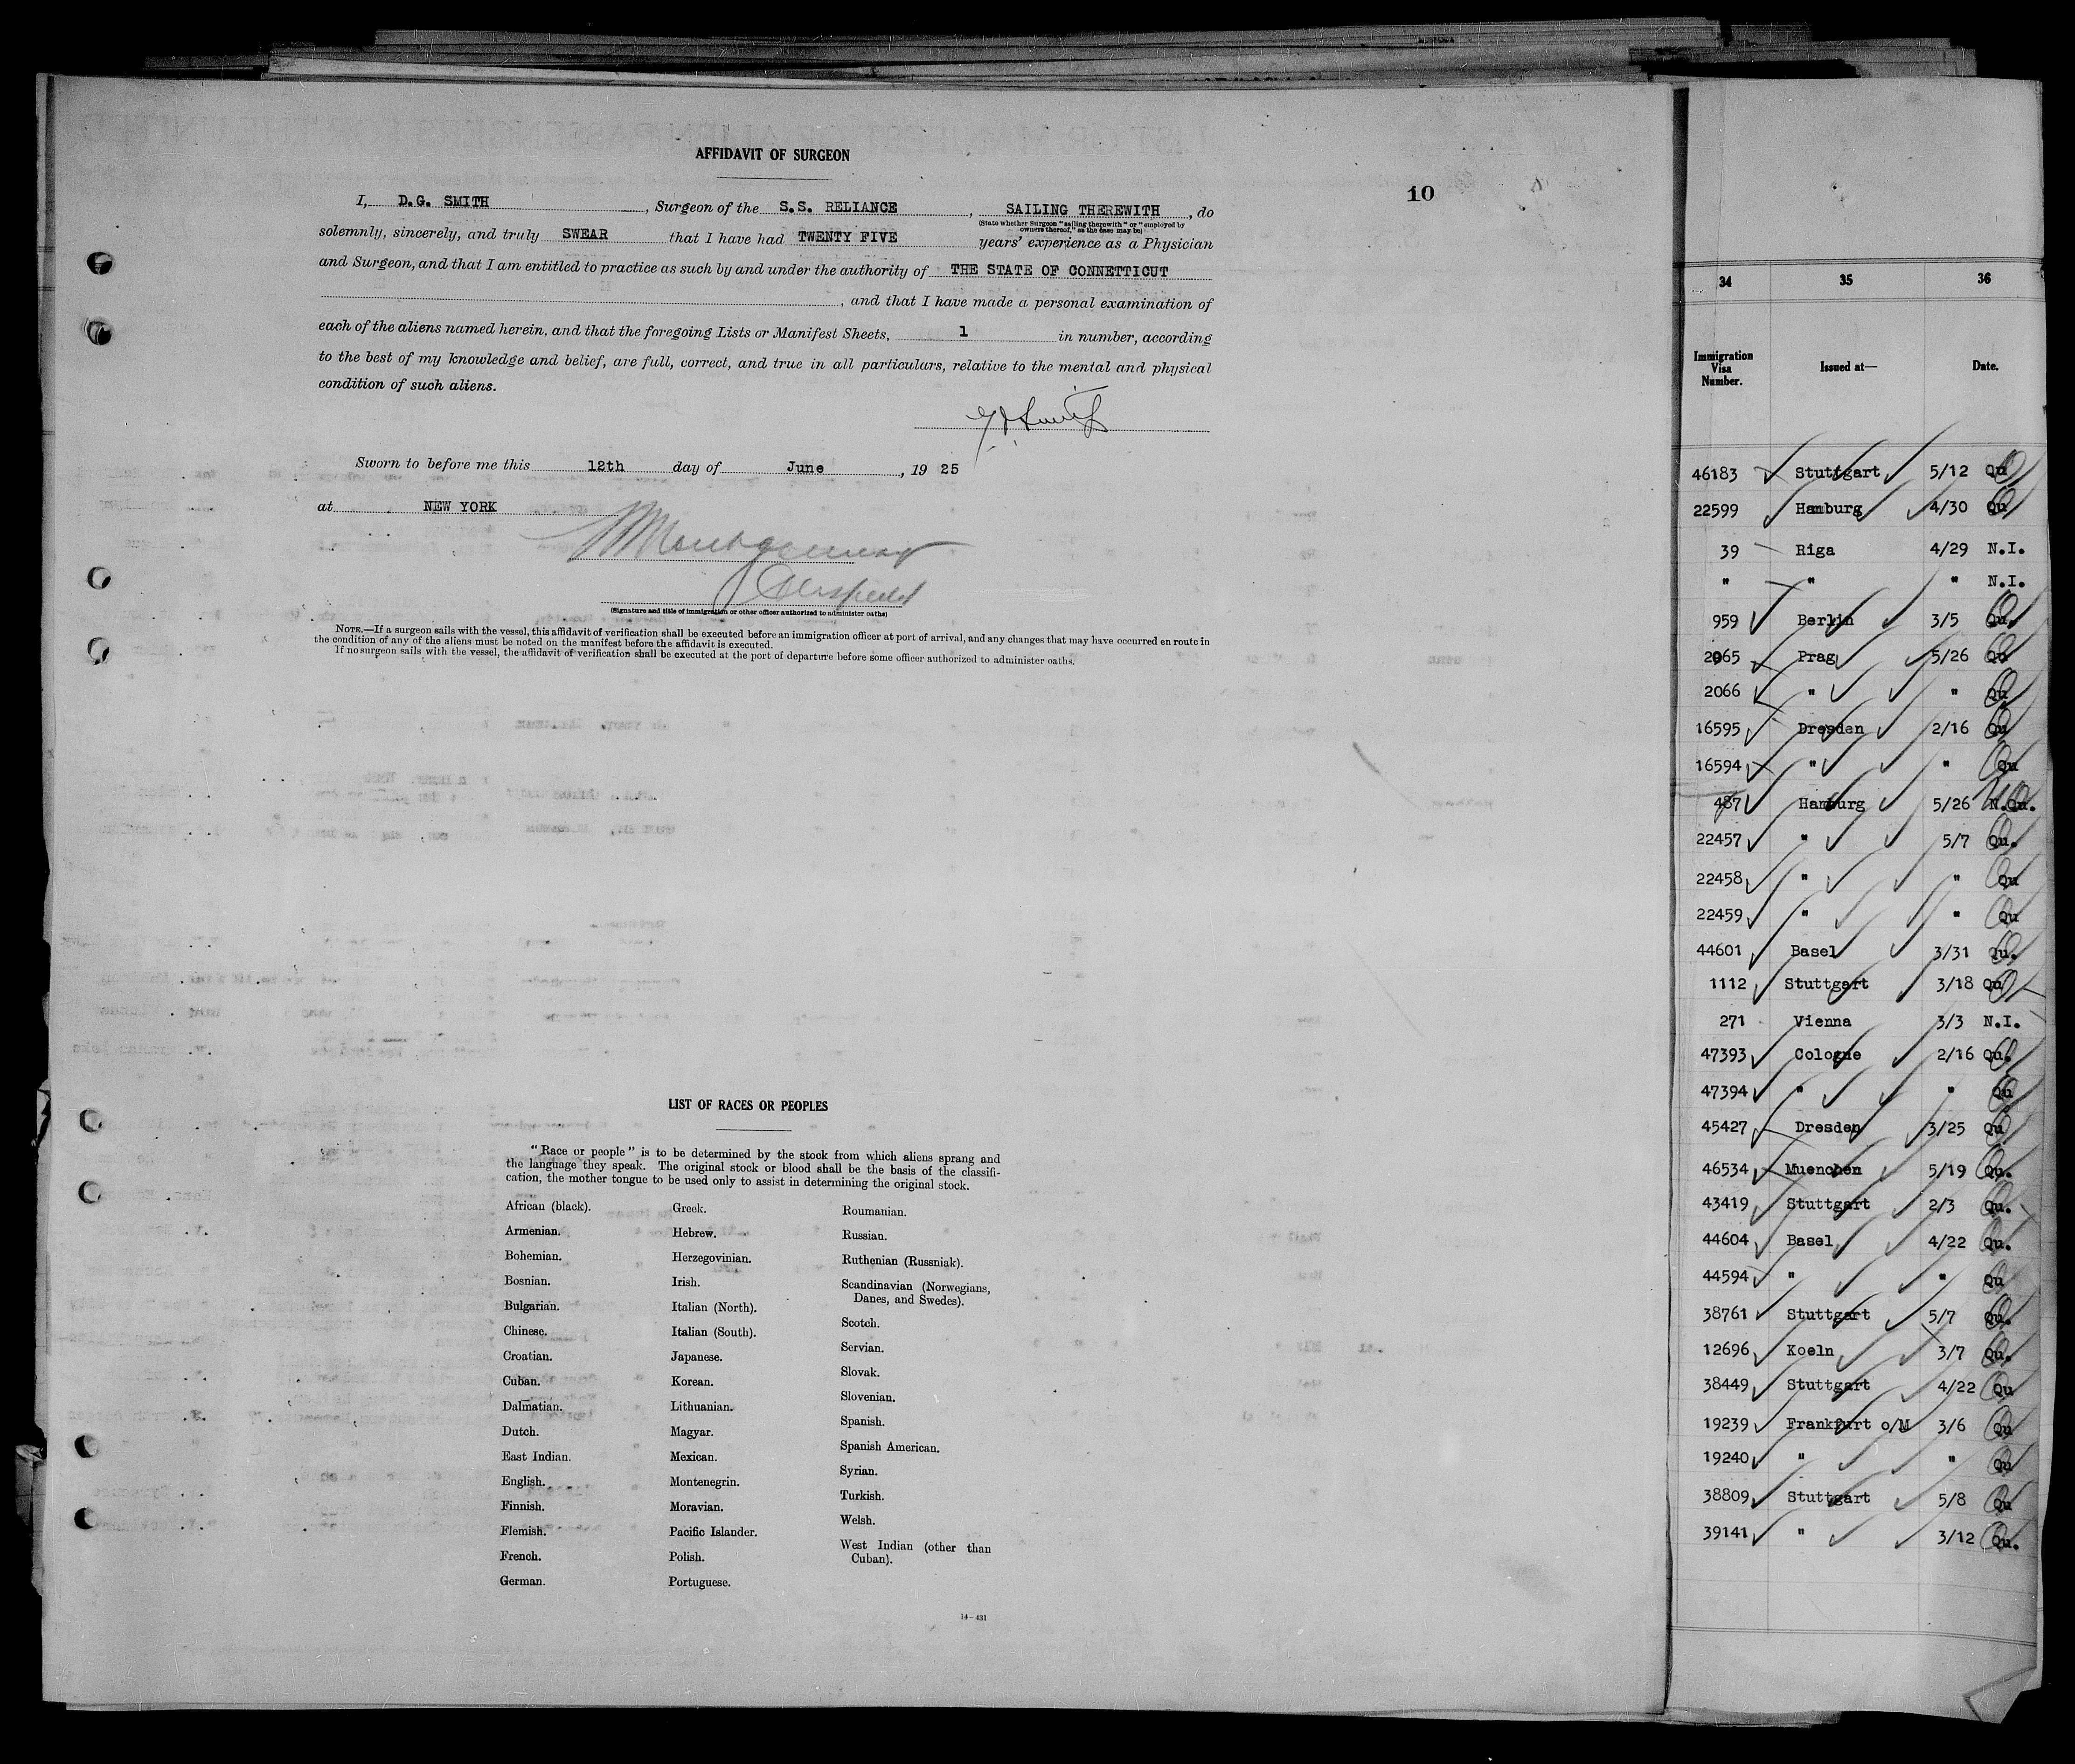 AFFIDAVIT OF SURGEON
10
I, D.G. SMITH, Surgeon of the S.S. RELIANCE, SAILING THEREWITH, do
(State whether Surgeon "sailing therewith" or "employed by
owners thereof," as the case may be)
solemnly, sincerely, and truly SWEAR that I have had TWENTY FIVE years' experience as a Physician
and Surgeon, and that I am entitled to practice as such by and under the authority of THE STATE OF CONNETTICUT
, and that I have made a personal examination of
each of the aliens named herein, and that the foregoing Lists or Manifest Sheets, 1 in number, according
to the best of my knowledge and belief, are full, correct, and true in all particulars, relative to the mental and physical
condition of such aliens.
Smith
Sworn to before me this 12th day of June, 19 25
at NEW YORK
Montgomery
(Signature and title of immigration or other officer authorized to administer oaths)
NOTE.—If a surgeon sails with the vessel, this affidavit of verification shall be executed before an immigration officer at port of arrival, and any changes that may have occurred en route in
the condition of any of the aliens must be noted on the manifest before the affidavit is executed.
If no surgeon sails with the vessel, the affidavit of verification shall be executed at the port of departure before some officer authorized to administer oaths.
LIST OF RACES OR PEOPLES
"Race or people" is to be determined by the stock from which aliens sprang and
the language they speak. The original stock or blood shall be the basis of the classifi-
cation, the mother tongue to be used only to assist in determining the original stock.
African (black).
Armenian.
Bohemian.
Bosnian.
Bulgarian.
Chinese.
Croatian.
Cuban.
Dalmatian.
Dutch.
East Indian.
English.
Finnish.
Flemish.
French.
German.
Greek.
Hebrew.
Herzegovinian.
Irish.
Italian (North).
Italian (South).
Japanese.
Korean.
Lithuanian.
Magyar.
Mexican.
Montenegrin.
Moravian.
Pacific Islander.
Polish.
Portuguese.
Roumanian.
Russian.
Ruthenian (Russniak).
Scandinavian (Norwegians,
Danes, and Swedes).
Scotch.
Servian.
Slovak.
Slovenian.
Spanish.
Spanish American.
Syrian.
Turkish.
Welsh.
West Indian (other than
Cuban).
14—431
34 35 36
Immigration
Visa
Number.
Issued at—
Date.
46183 Stuttgart 5/12 Qu
22599 Hamburg 4/30 Qu
39 Riga 4/29 N.I.
" " " N.I.
959 Berlin 3/5 Qu.
2065 Prag 5/26 Qu
2066 " " Qu
16595 Dresden 2/16 Qu
16594 " " Qu
487 Hamburg 5/26 N.Qu.
22457 " 5/7 Qu.
22458 " " Qu
22459 " " Qu
44601 Basel 3/31 Qu.
1112 Stuttgart 3/18 Qu
271 Vienna 3/3 N.I.
47393 Cologne 2/16 Qu.
47394 " " Qu
45427 Dresden 3/25 Qu
46534 Muenchen 5/19 Qu.
43419 Stuttgart 2/3 Qu.
44604 Basel 4/22 Qu.
44594 " " Qu
38761 Stuttgart 5/7 Qu.
12696 Koeln 3/7 Qu.
38449 Stuttgart 4/22 Qu
19239 Frankfurt o/M 3/6 Qu
19240 " " Qu
38809 Stuttgart 5/8 Qu
39141 " 3/12 Qu.